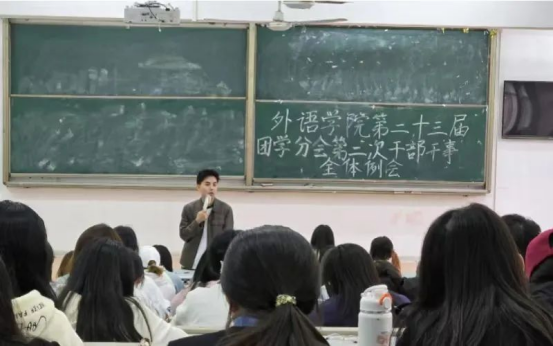 外语学院第二十三届
团学分会第二次干部干事
全体例会